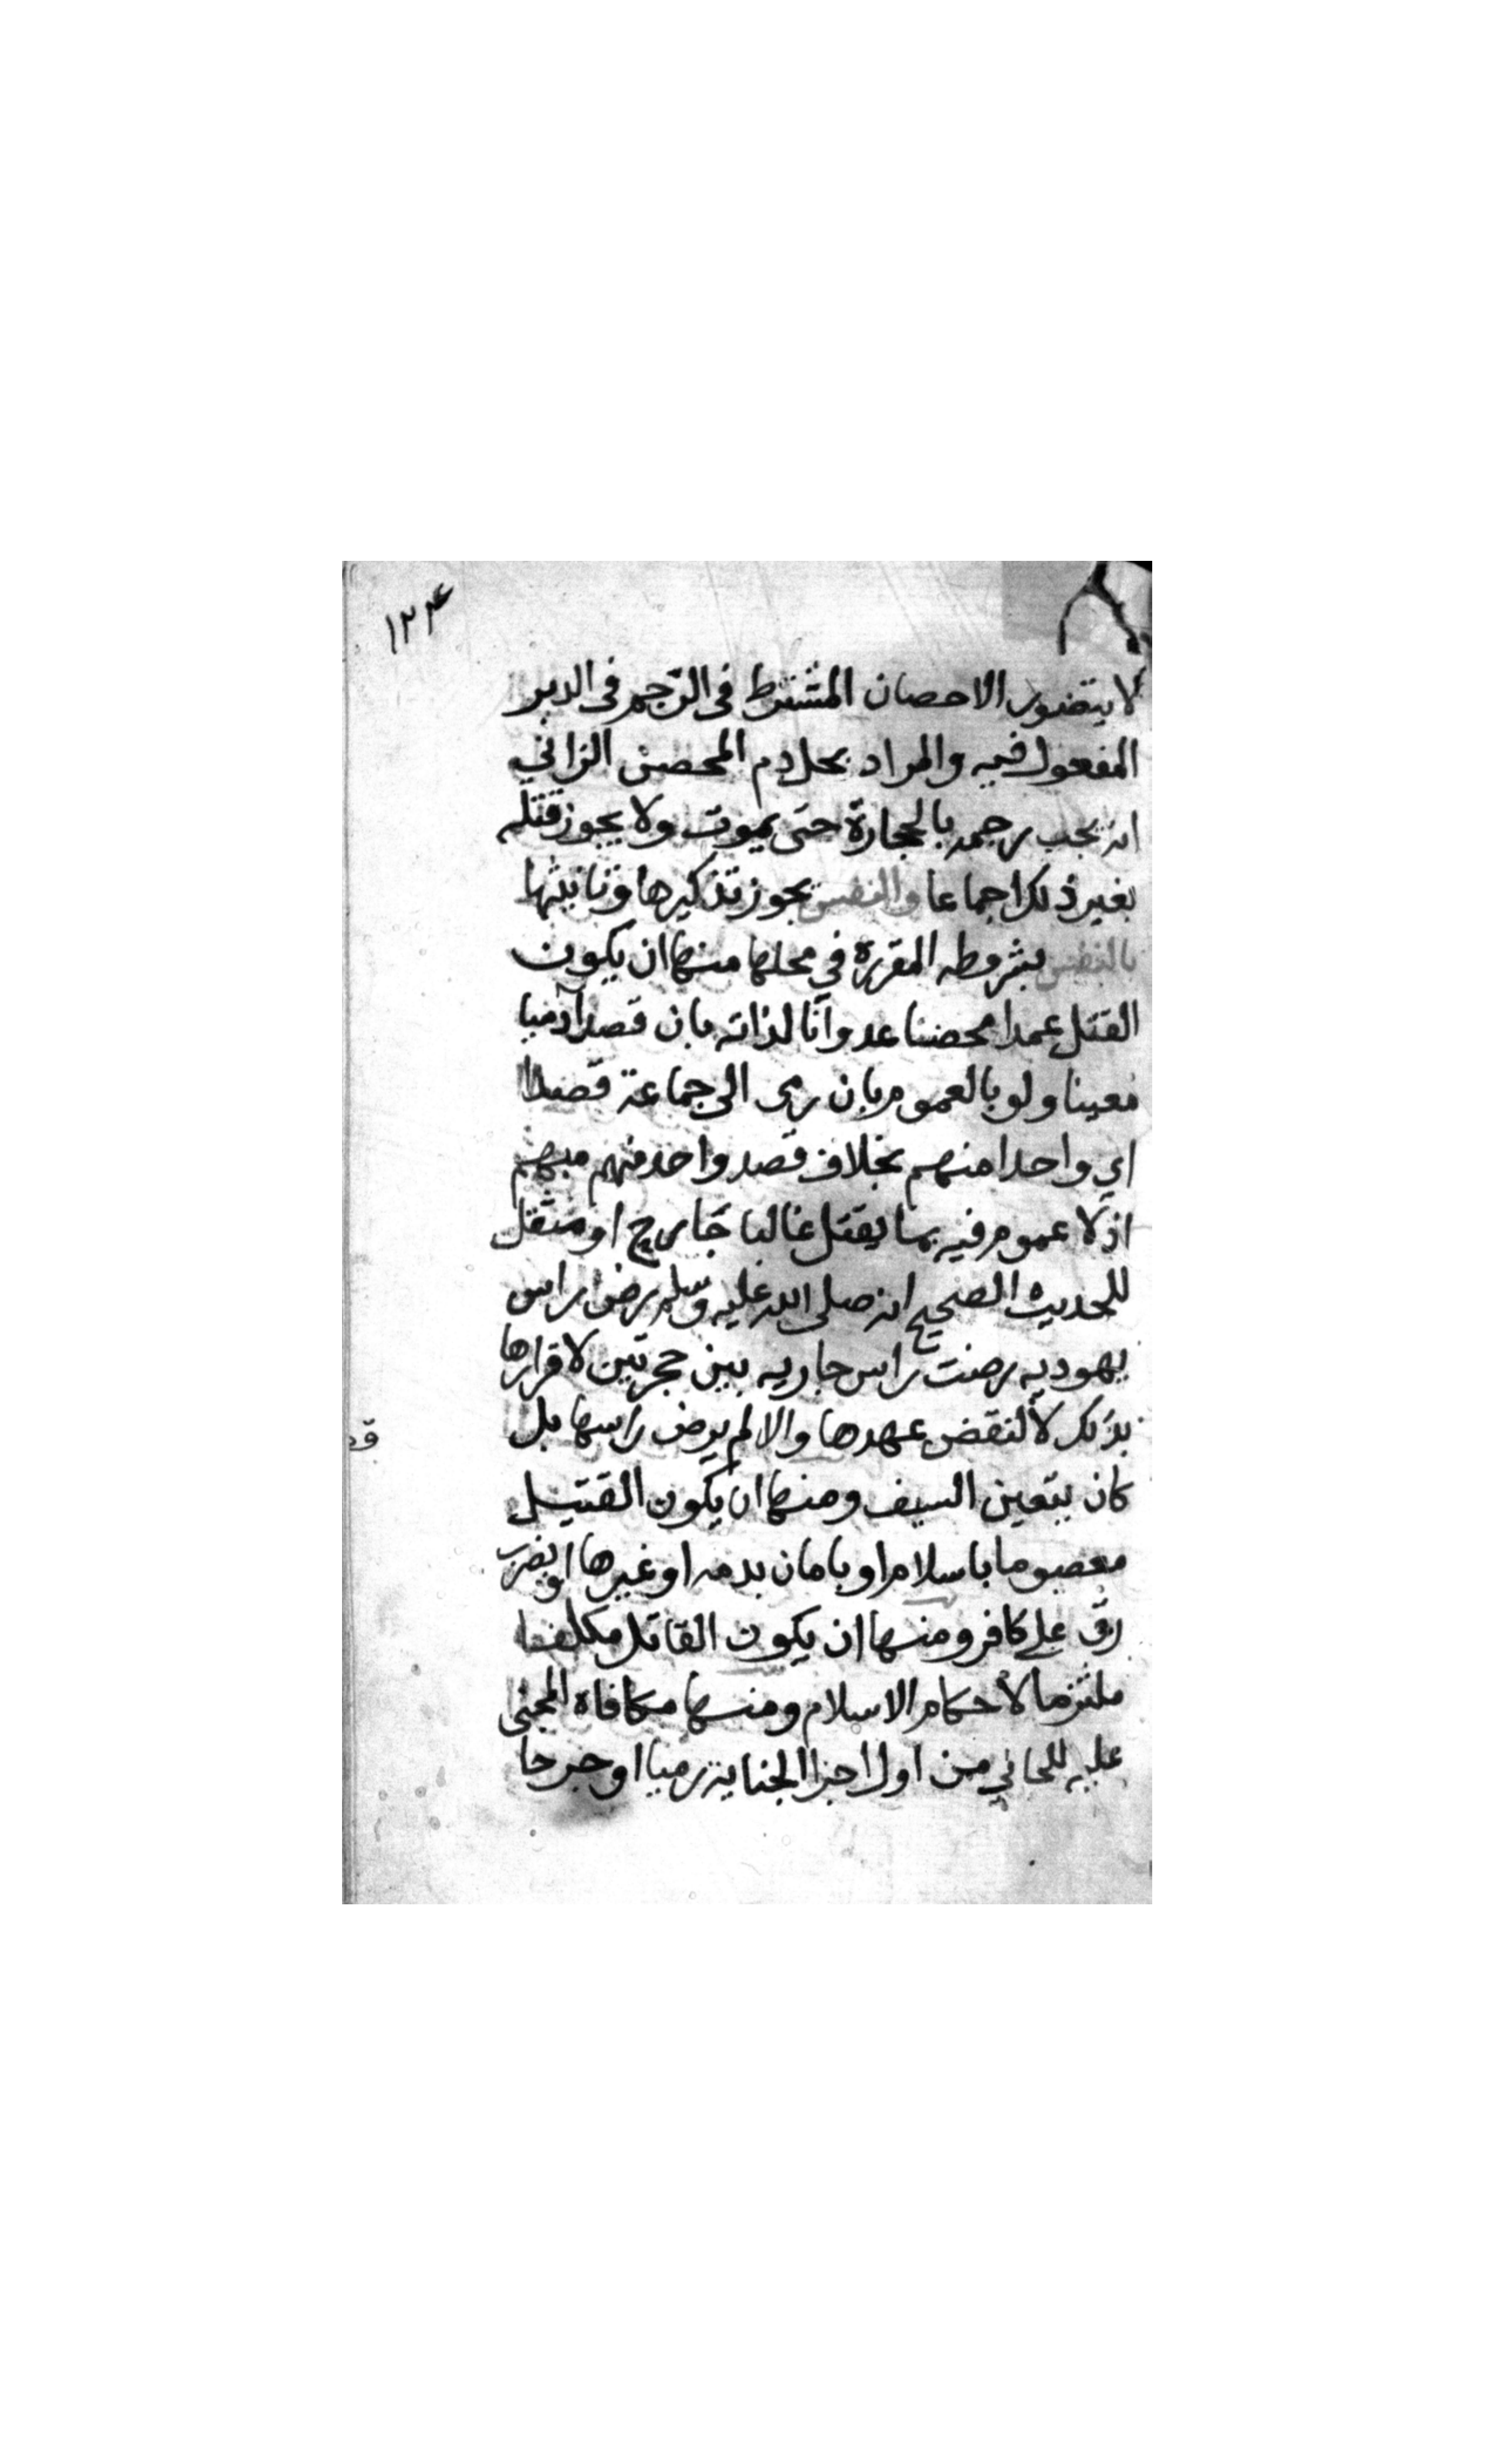 ١٢٤
لا يتصور الاحصان المشترط في الرجم في الدبر
المفعول فيه والمراد بحل دم المحصن الزاني
انه يجب رجمه بالحجارة حتى يموت ولا يجوز قتله
بغير ذلك اجماعا والنفس يجوز تذكيرها وتانيثها
بالنفس بشروطه المقررة في محلها منها ان يكون
القتل عمدا محضا عدوانا لذاته بان قصد آدميا
معينا ولو بالعموم بان رمى الى جماعة قصدا
اي واحدا منهم بخلاف قصد واحد منهم مبهم
اذ لا عموم فيه بما يقتل غالبا جارح او مثقل
للحديث الصحيح انه صلى الله عليه وسلم رض راس
يهوديه رضت راس جاريه بين حجرين لاقرارها
بذلك لا لنقض عهدها والا لم يرض راسها بل
كان يتعين السيف ومنها ان يكون القتيل
معصوما باسلام او بامان بدمه او غيرها او بضرب
رق على كافر ومنها ان يكون القاتل مكلفا
ملتزما لأحكام الاسلام ومنها مكافاة المجني
عليه للجاني من اول اجزا الجناية رميا او جرحا